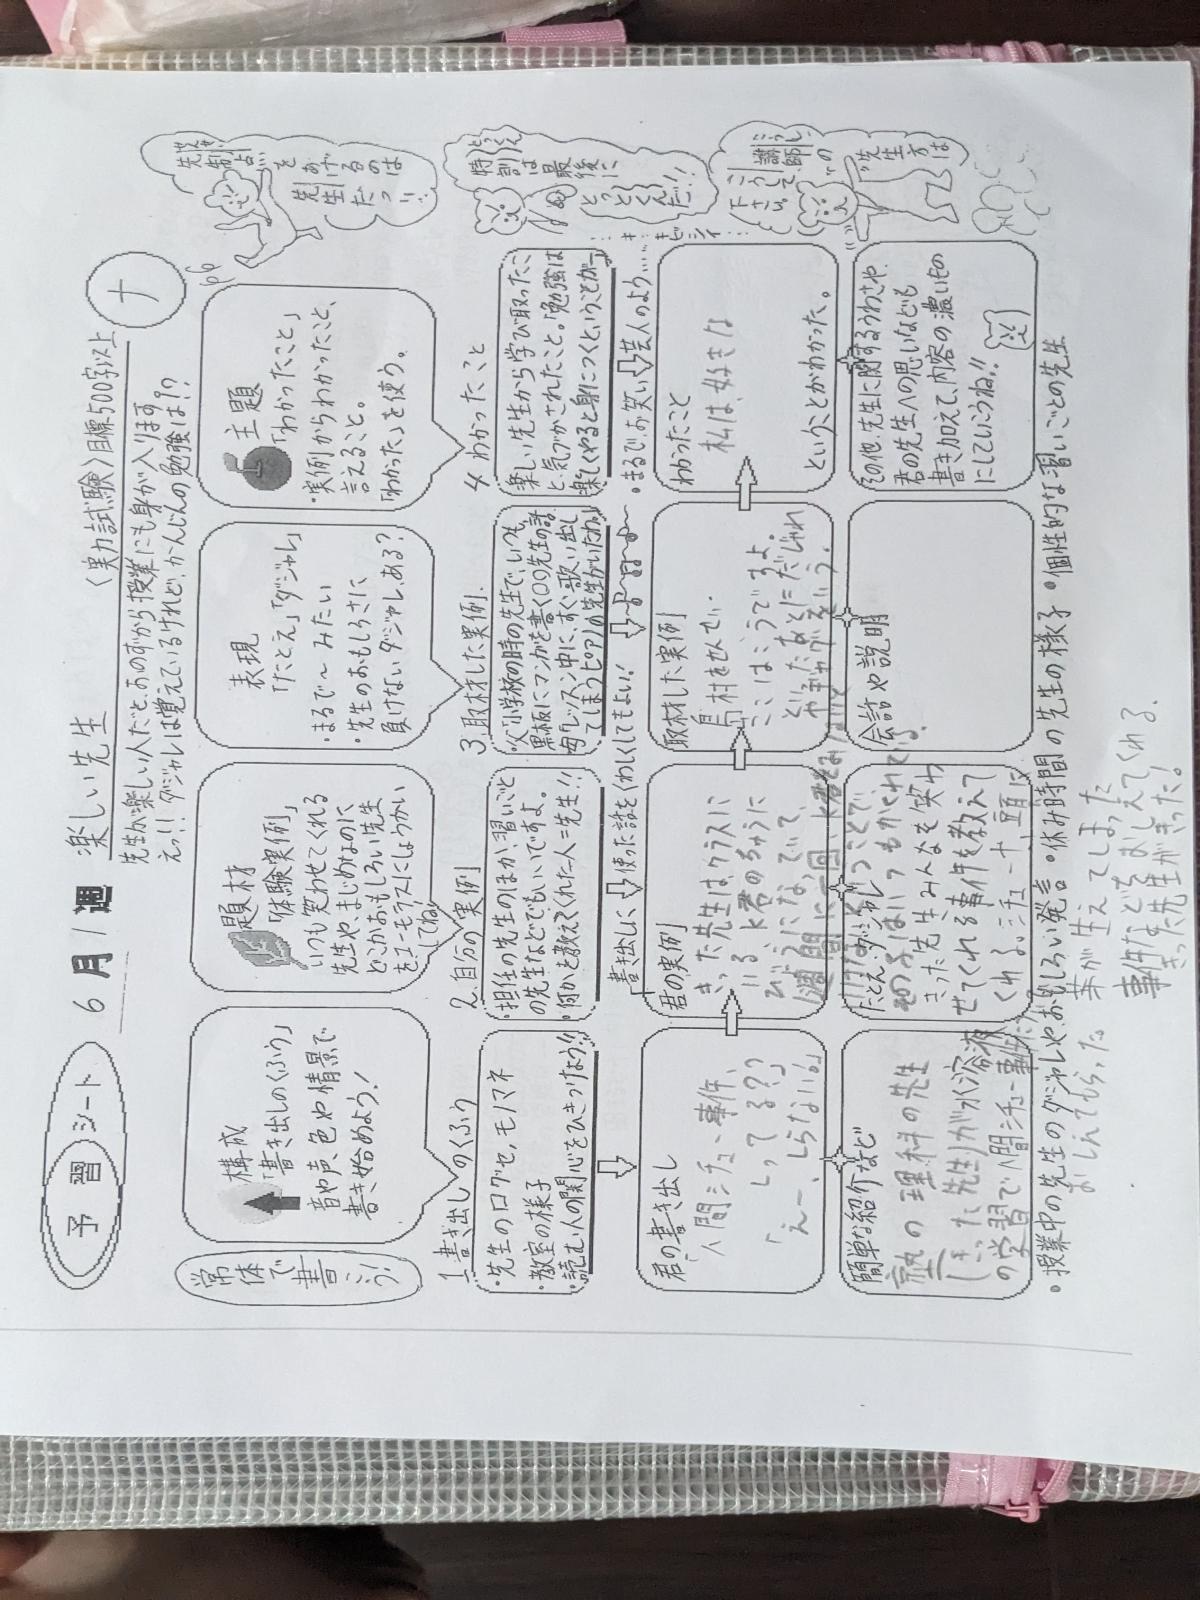 予習 シート
6月1週
楽しい先生
〈実力試験〉目標500字以上
ナ
先生が楽しい人だと、おのずから授業にも身が入ります
えっ!! ダジャレは覚えているけれど、かんじんの勉強は!?
常体で書こう!
構成
「書き出しのくふう」
音や声、色や情景で
書き始めよう!
題材
「体験実例」
いつも笑わせてくれる
先生や、まじめなのに
どこかおもしろい先生
をユーモラスにしょうかい
してね!
表現
「たとえ」「ダジャレ」
・まるで〜みたい
・先生のおもしろさに
負けないダジャレある?
主題
「わかったこと」
・実例からわかったこと、
言えること。
「わかった」を使う。
先制点
せんせい
をあげるのは
先生だっ!!
1 書き出しのくふう
・先生の口グセ、モノマネ
・教室の様子
・読む人の関心をひきつけよう!!
2 自分の実例
・担任の先生のほか、習いごと
の先生などでもいいですよ。
・何かを教えてくれた人=先生!!
3 取材した実例
・父「小学校の時の先生で、いつも
黒板にマンガを書く〇〇先生の話
母「レッスン中に、すぐ歌い出し
てしまうピアノの先生がいたわ。」
4 わかったこと
楽しい先生から学び取ったこ
と、気づかされたこと。「勉強は
楽しくやると身につくということが〜」
特訓は最後に
とっくん
とっとくんだ!!
「書き出しに使った話をくわしくしてもよい!
・まるでお笑い芸人のよう…
君の書き出し
「人間シチュー事件、
しってる??」
「えー、しらない。」
君の実例
きった先生は、クラスに
いる、K君のちゅうに
びょうになっていて
1週間に一回、K君をみないと
取材した実例
島村をせんせい
ここはこうですよ。
といったあとにだじゃれ
やギャグをいう。
わかったこと
私は、好きな
ということがわかった。
講師
こうし
こうして下さい。
の先生方は
簡単な紹介など
塾の理科の先生
(きった先生)が水溶液
の学習で人間シチュー事件
たとえ・ダジャレ
きった先生みんなを笑わ
せてくれる事件を教えて
くれる。
会話や説明
その他、先生に関するうわさや、
君の先生への思いなども
書き加えて、内容の濃いもの
にしていうね!!
・授業中の先生のダジャレや、おもしろい発言 ・休み時間の先生の様子 ・個性的な習いごとの先生
おしえてもらった。
芽が生えてしまった
事件などをおしえてくれる。
きった先生がきった!